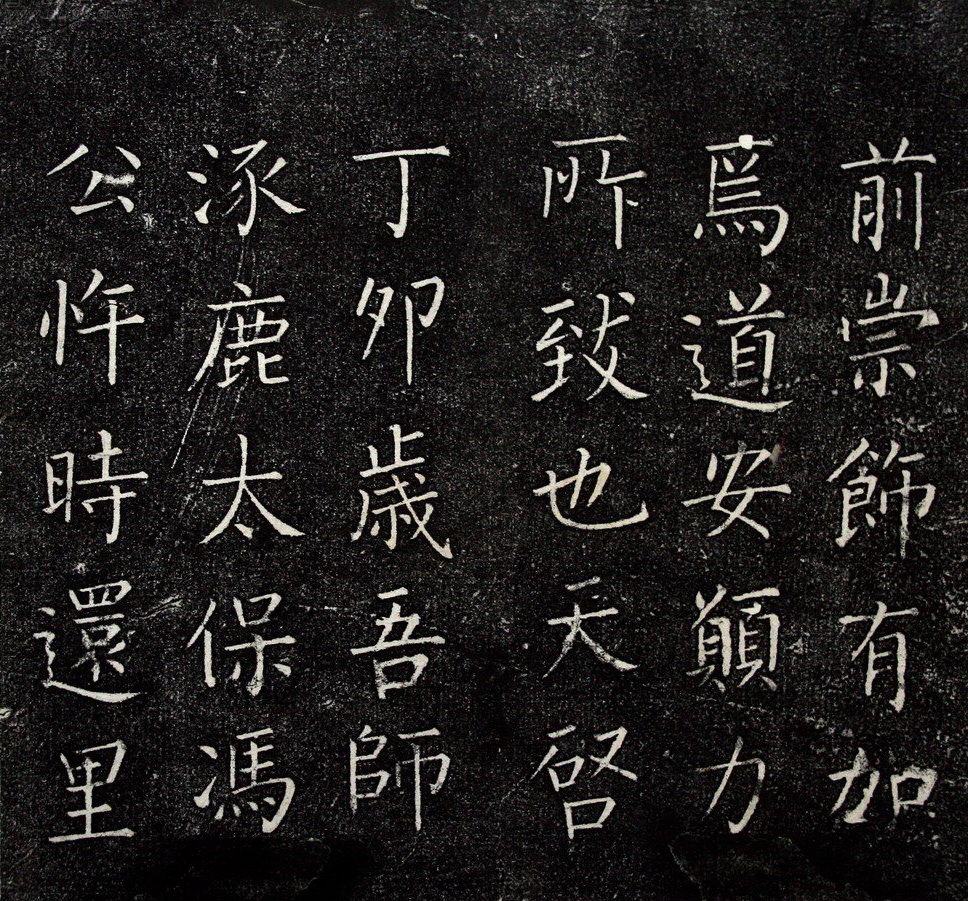 前崇飾有加
焉道安顛力
所致也天啓
丁卯歳吾師
涿鹿太保馮
公忤時還里